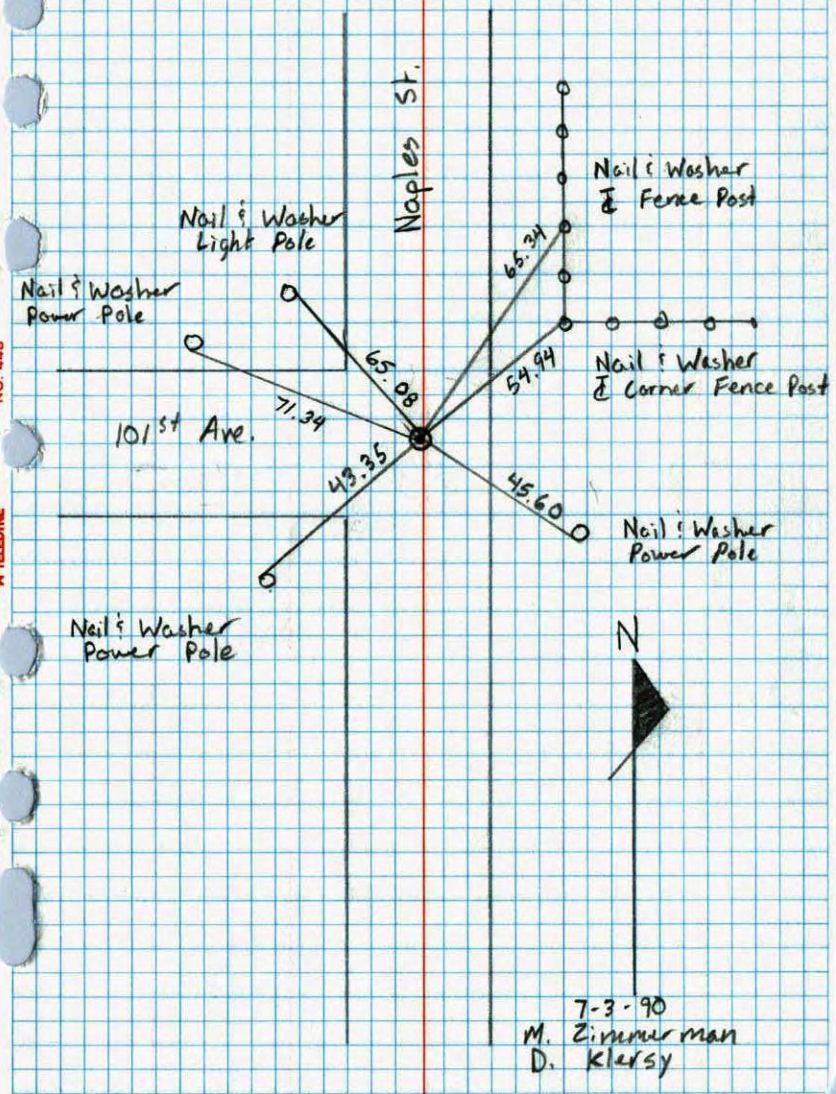 Naples St.
Nail & Washer
℄ Fence Post
Nail & Washer
Light Pole
65.34
Nail & Washer
Power Pole
65.08
54.94
Nail & Washer
℄ Corner Fence Post
71.34
101st Ave.
43.35
45.60
Nail & Washer
Power Pole
Nail & Washer
Power Pole
N
7-3-90
M. Zimmerman
D. Klersy